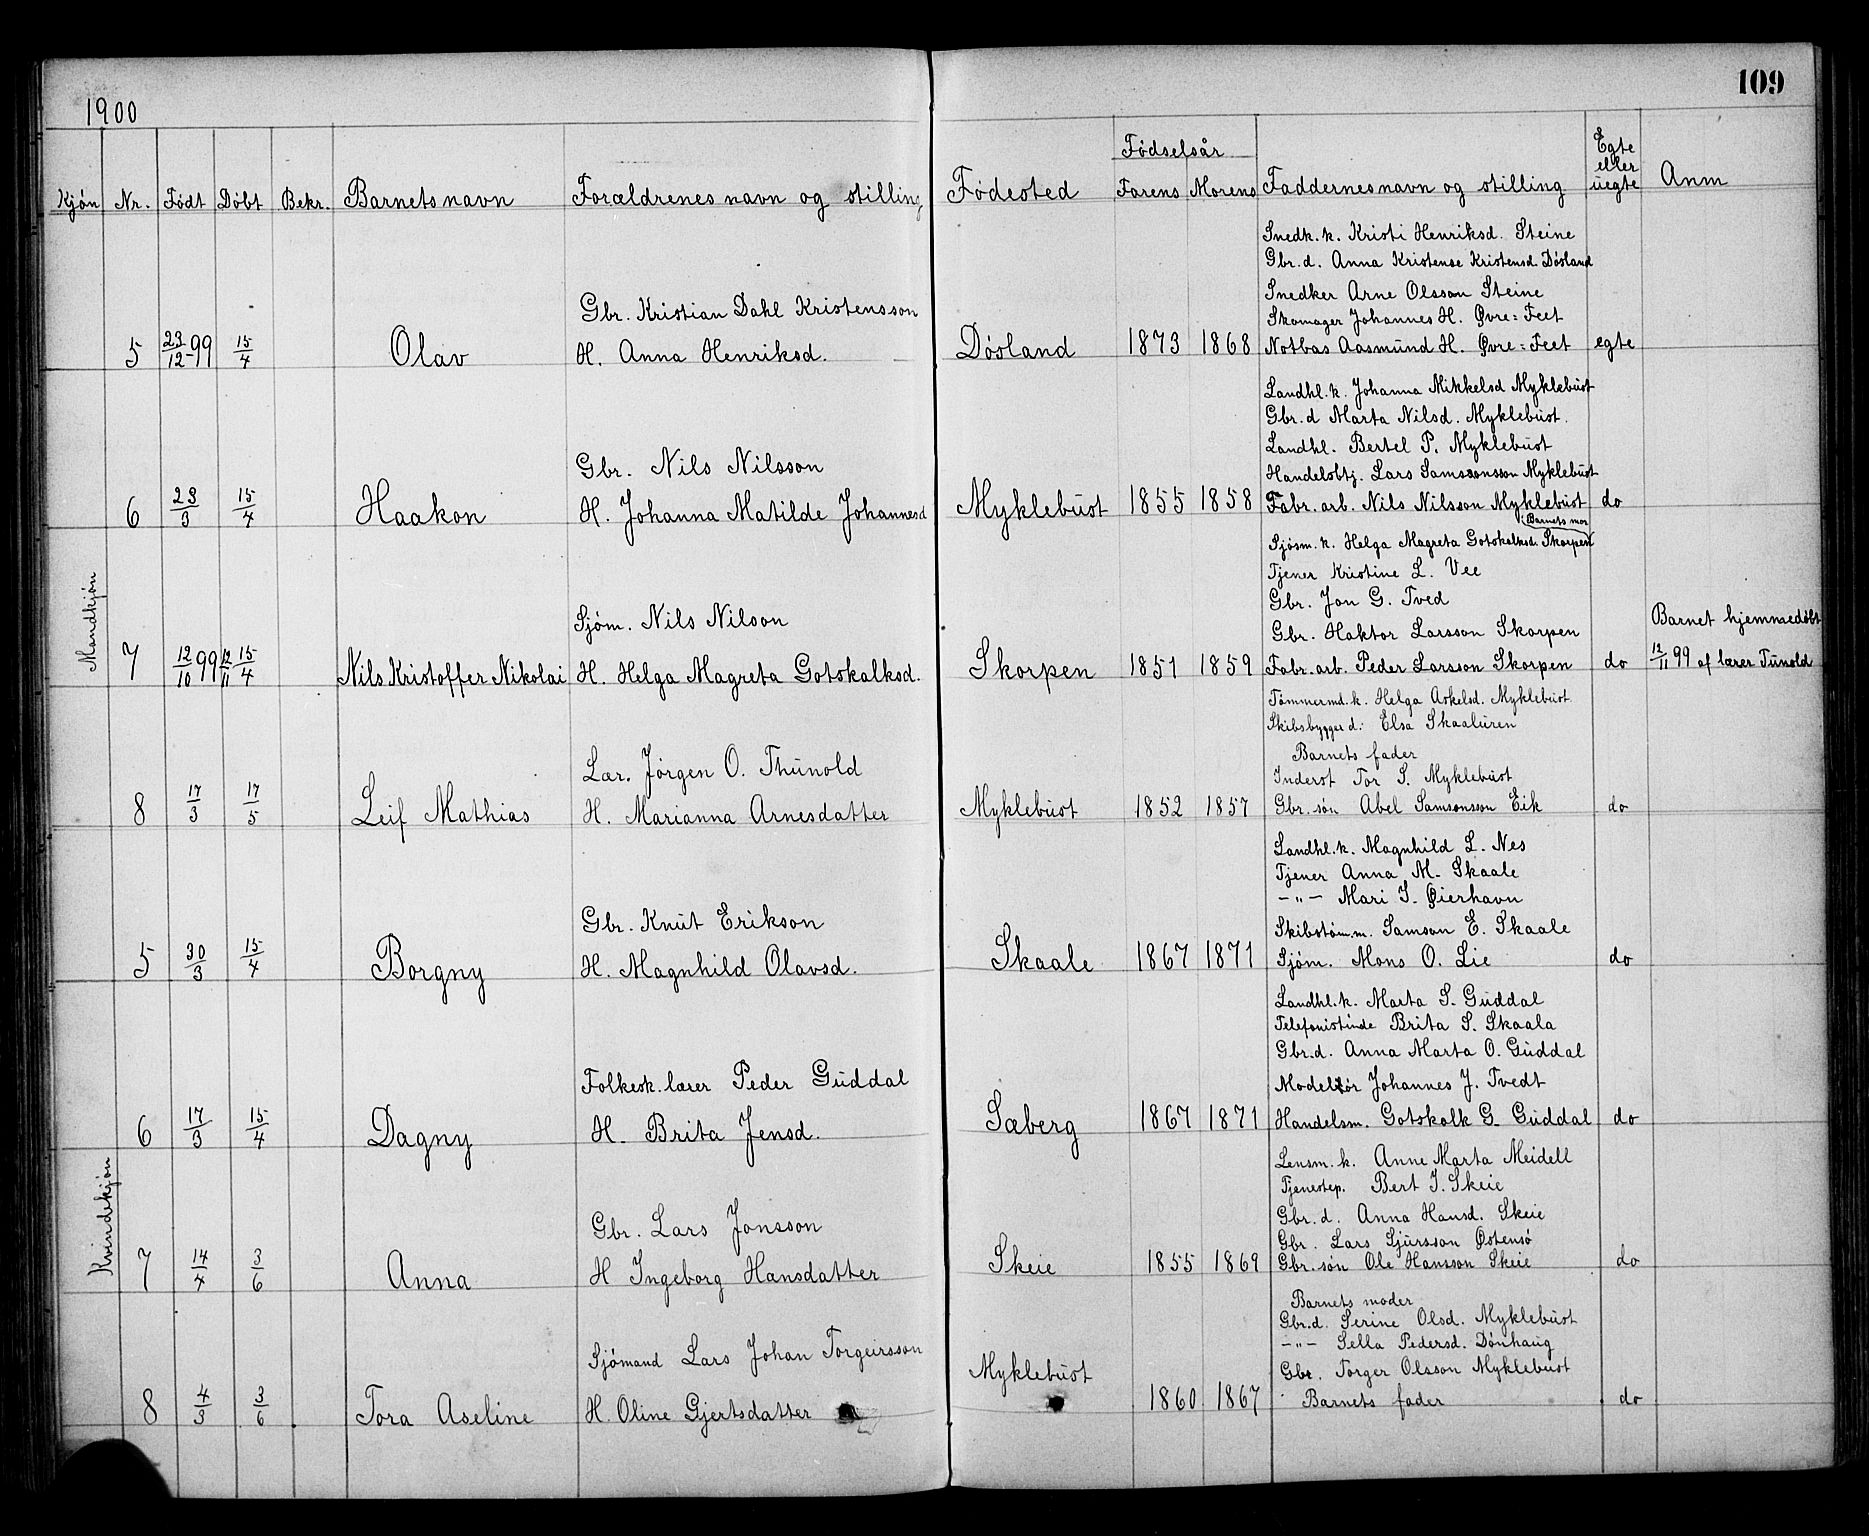 1900
109
Kjøn Nr. Født Døbt Bekr. Barnets navn Forældrenes navn og stilling Fødested Fødselsår Farens Morens Faddernes navn og stilling Egte eller uegte Anm
Mandkjøn
Snedk. k. Kristi Henriksd. Steine
Gbr. d. Anna Kristense Kristensd. Døsland
Snedker Arne Olsson Steine
Gbr. Kristian Dahl Kristensson
Skomager Johannes H. Øvre=Feet
5 23/12-99 15/4 Olav H. Anna Henriksd. Døsland 1873 1868 Notbas Aasmund H. Øvre=Feet egte
Landhl. k. Johanna Mikkelsd Myklebust
Gbr. d Marta Nilsd. Myklebust.
Landhl. Bertel P. Myklebust
Gbr. Nils Nilsson
Handelsbtj. Lars Samsonsson Myklebust
6 23/3 15/4 Haakon H. Johanna Matilde Johannesd Myklebust 1855 1858 Fabr. arb. Nils Nilsson Myklebust do
Barnets mor
Sjøsm. k. Helga Magreta Gotskalksd. Skorpen
Tjener Kristine L. Vee
Gbr. Jon G. Tved
Sjøm. Nils Nilson
Gbr. Haktor Larsson Skorpen
Barnet hjemmedøbt
7 12/10 99 12/11 15/4 Nils Kristoffer Nikolai H. Helga Magreta Gotskalksd. Skorpen 1851 1859 Fabr. arb. Peder Larsson Skorpen do 12/11 99 af lærer Tunold
Tømmermd. k. Helga Askelsd. Myklebust
Skibsbygger d. Elsa Skaaluren
Barnets fader
Lær. Jørgen O. Thunold
Inderst Tor S. Myklebust
8 17/3 17/5 Leif Mathias H. Marianna Arnesdatter Myklebust 1852 1857 Gbr. søn Abel Samsonson Eik do
Kvindekjøn
Landhl. k. Magnhild L. Nes
Tjener Anna M. Skaale
-"- Mari I. Øierhavn
Gbr. Knut Erikson
Skibstøm.m. Samson E. Skaale
5 30/3 15/4 Borgny H. Magnhild Olavsd. Skaale 1867 1871 Sjøm. Mons O. Lie do
Landhl. k. Marta S. Guddal
Telefonistinde Brita S. Skaala
Gbr. d. Anna Marta O. Guddal
Folkesk. lærer Peder Guddal
Modeltør Johannes J. Tvedt
6 17/3 15/4 Dagny H. Brita Jensd. Sæberg 1867 1871 Handelsm. Gotskalk G. Guddal do
Lensm. k. Anne Marta Meidell
Tjenestep. Bert I. Skeie
Gbr. d. Anna Hansd. Skeie
Gbr. Lars Jonsson
Gbr. Lars Sjursson Østensø
7 14/4 3/6 Anna H Ingeborg Hansdatter Skeie 1855 1869 Gbr. søn Ole Hansson Skeie do
Barnets moder
Gbr. d. Serine Olsd. Myklebust
-"- Sella Pedersd. Dønhaug
Sjømand Lars Johan Torgeirsson
Gbr. Torger Olsson Myklebust
8 4/3 3/6 Tora Aseline H. Oline Gjertsdatter Myklebust 1860 1867 Barnets fader do